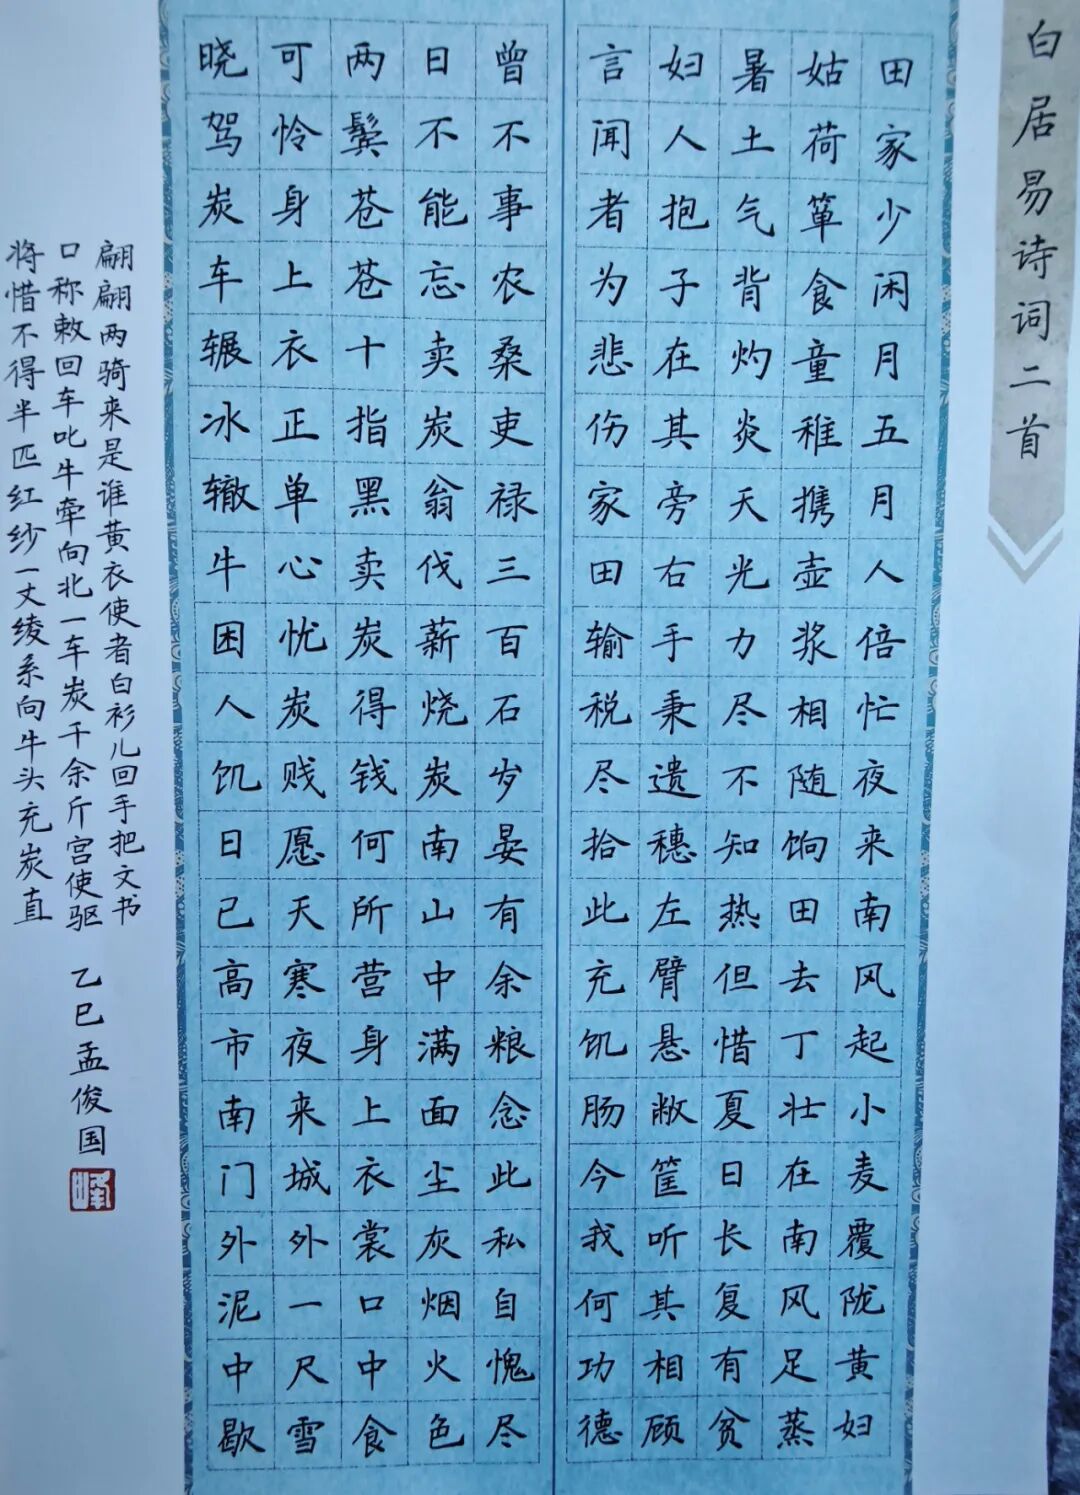 白居易诗词二首
田家少闲月五月人倍忙夜来南风起小麦覆陇黄妇
姑荷箪食童稚携壶浆相随饷田去丁壮在南风足蒸
暑土气背灼炎天光力尽不知热但惜夏日长复有贫
妇人抱子在其旁右手秉遗穗左臂悬敝筐听其相顾
言闻者为悲伤家田输税尽拾此充饥肠今我何功德
曾不事农桑吏禄三百石岁晏有余粮念此私自愧尽
日不能忘卖炭翁伐薪烧炭南山中满面尘灰烟火色
两鬓苍苍十指黑卖炭得钱何所营身上衣裳口中食
可怜身上衣正单心忧炭贱愿天寒夜来城外一尺雪
晓驾炭车辗冰辙牛困人饥日已高市南门外泥中歇
翩翩两骑来是谁黄衣使者白衫儿回手把文书
口称敕回车叱牛牵向北一车炭千余斤宫使驱
将惜不得半匹红纱一丈绫系向牛头充炭直
乙巳孟俊国